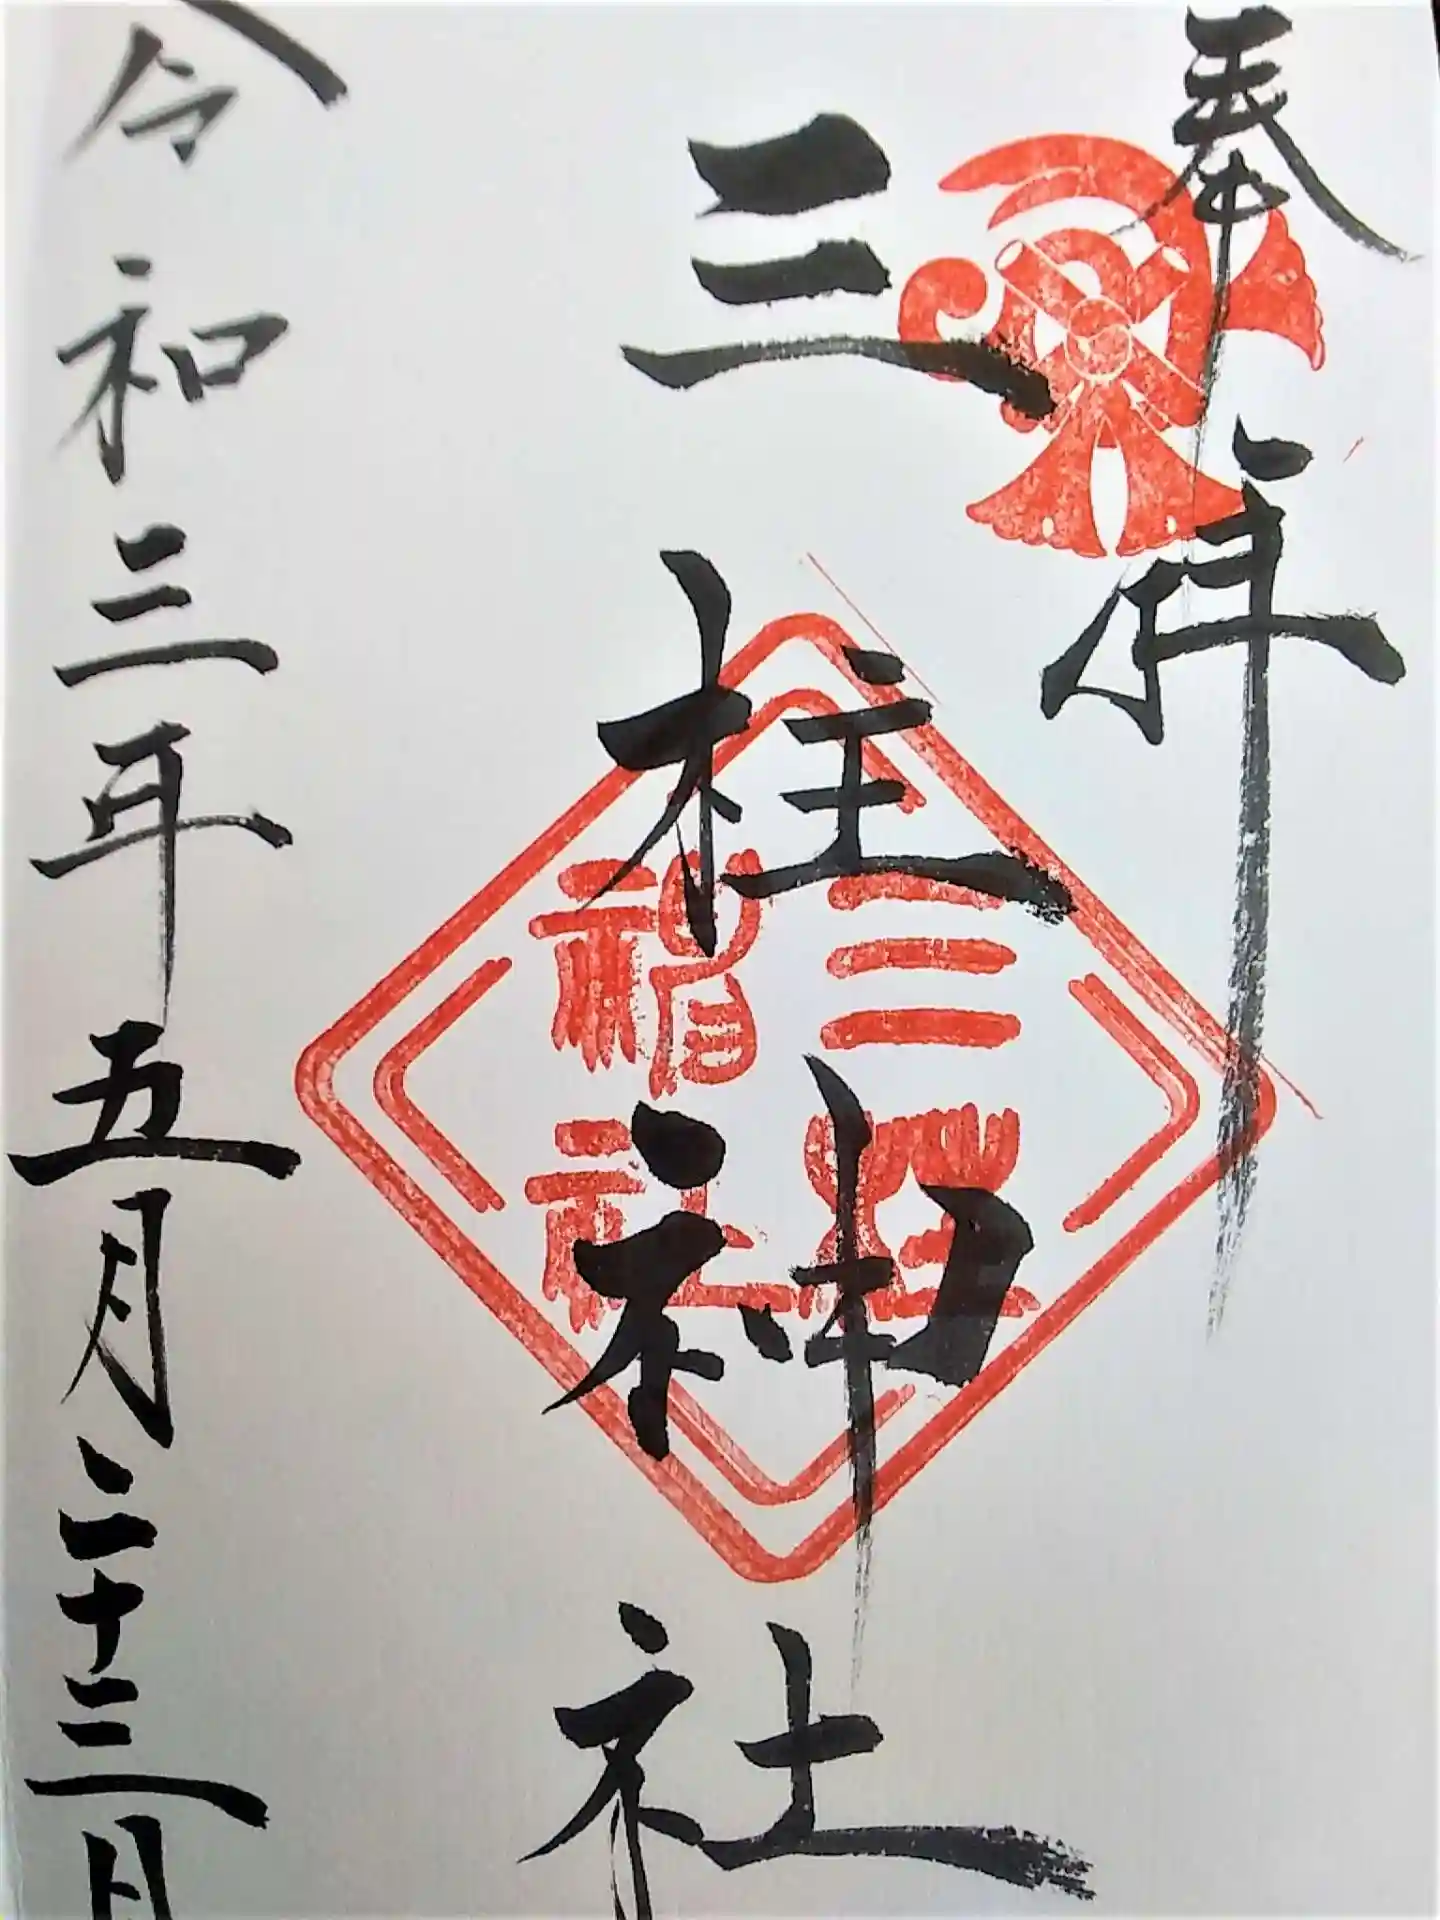 奉拜
三柱神社
三柱
神社
令和三年五月二十三日